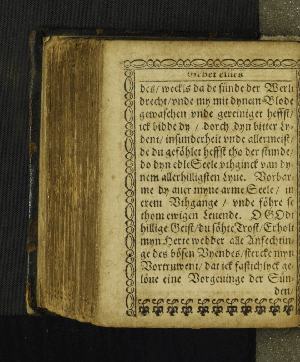 Gebet eines
des/ weckls da de sünde der Werlt
drecht/ vnde my mit dynem Blode
gewaschen vnde gereiniget heffst/
ick bidde dy / dorch dyn bitter Ly-
dent/ insunderheit vnde allermeist/
de du geföhlet heffst tho der stunde/
do dyn edle Seele vthginck van dy-
nem allerhilligsten Lyue. Vorbar-
me dy auer myne arme Seele/ in
erem Vthgange / vnde föhre se
thom ewigen Leuende. O GOdt
hillige Geist/ du söhte Trost/ Erholt
myn Herte wedder alle Anfechtin-
ge des bösen Vyendes/ stercke myn
Vortruwent/ dat ick fastichlyck ge-
löue eine Vorgeuinge der Sün-
den/